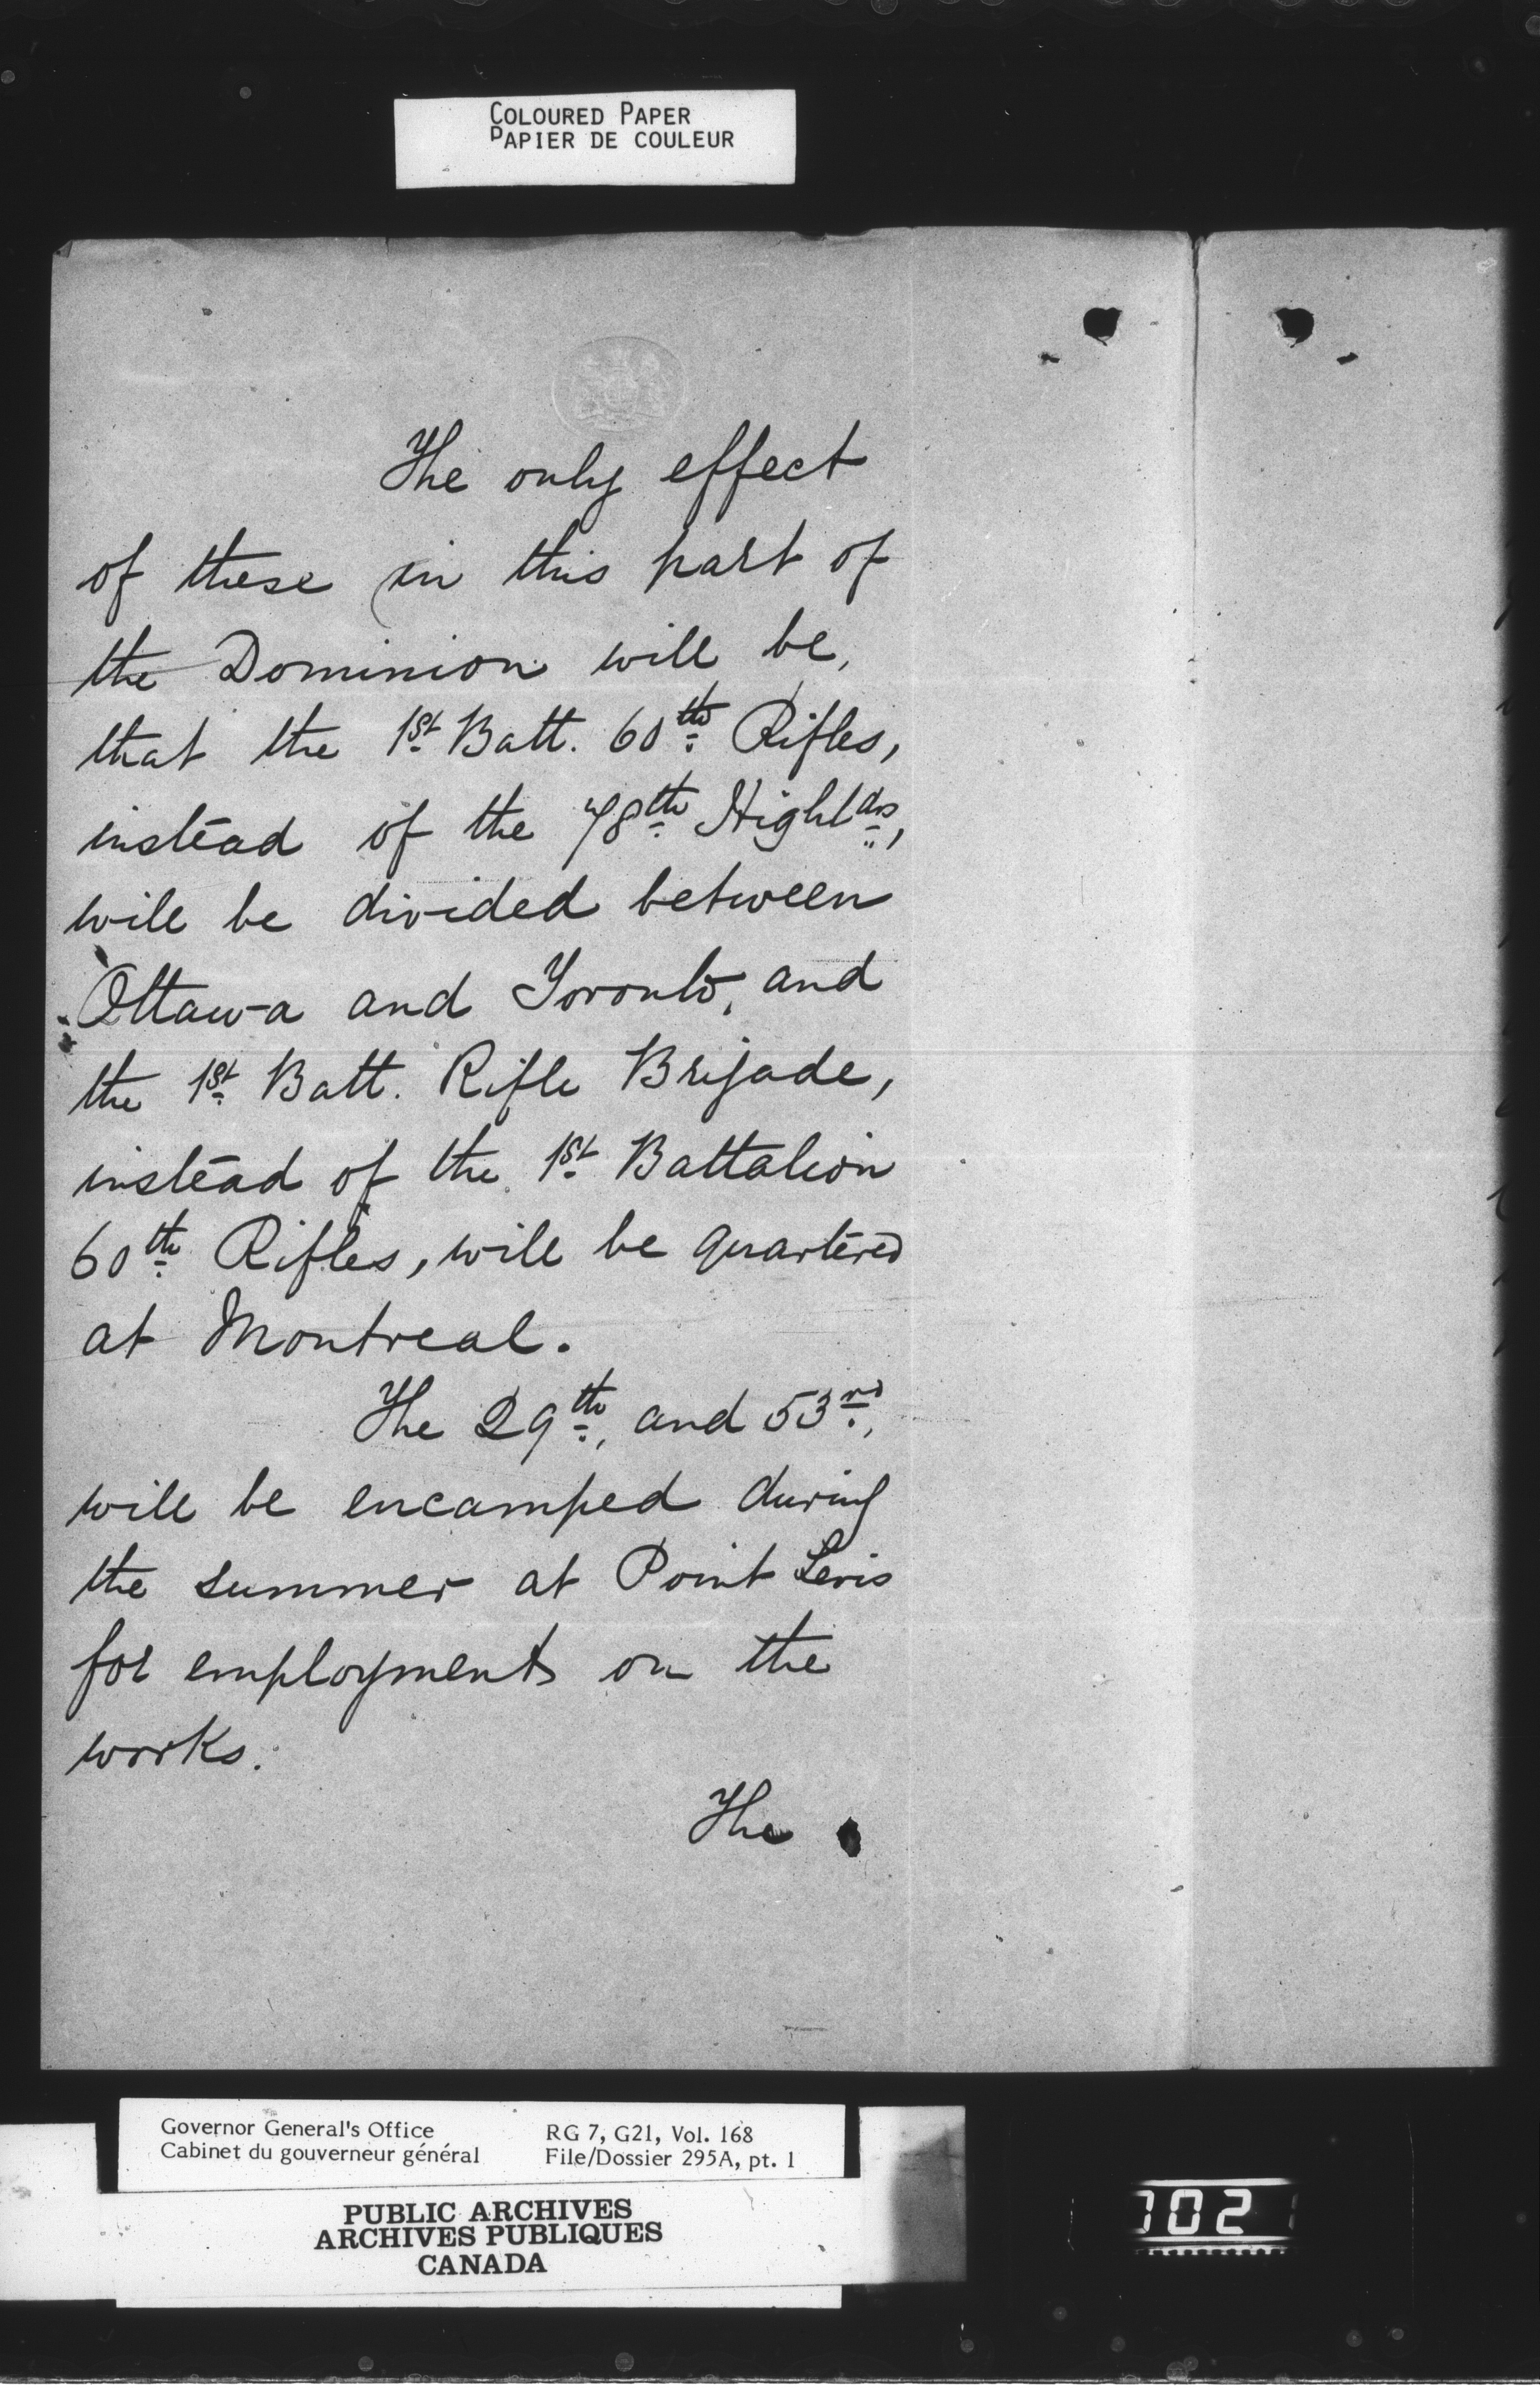 COLOURED PAPER
PAPIER DE COULEUR
The only effect
of these in this part of
the Dominion will be,
that the 1st Batt. 60th Rifles,
instead of the 78th Highldrs,
will be divided between
Ottawa and Toronto, and
the 1st Batt. Rifle Brigade,
instead of the 1st Battalion
60th Rifles, will be quartered
at Montreal.
The 29th, and 53rd,
will be encamped during
the summer at Point Levis
for employment on the
works.
The
Governor General's Office
Cabinet du gouverneur général
RG 7, G21, Vol. 168
File/Dossier 295A, pt. 1
PUBLIC ARCHIVES
ARCHIVES PUBLIQUES
CANADA